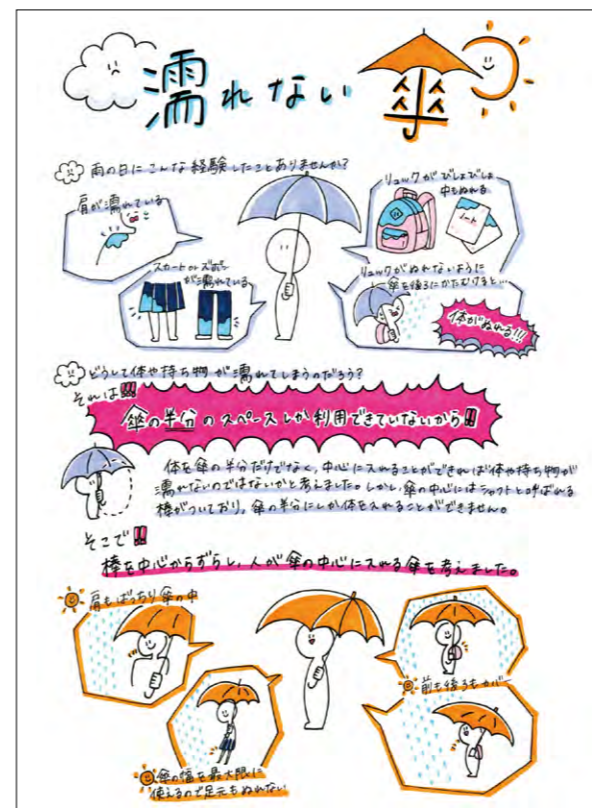 濡れない傘
雨の日にこんな経験したことありませんか?
肩が濡れている
リュックがびしょびしょ
中もぬれる
ノート
スカートやズボン
が濡れている
リュックがぬれないように
傘を後ろにかたむけると…
体がぬれる!!!
どうして体や持ち物が濡れてしまうのだろう?
それは!!!
傘の半分のスペースしか利用できていないから!!
体を傘の半分だけでなく、中心に入れることができれば体や持ち物が
濡れないのではないかと考えました。しかし、傘の中心にはシャフトと呼ばれる
棒がついており、傘の半分にしか体を入れることができません。
そこで!!
棒を中心からずらし、人が傘の中心に入れる傘を考えました。
肩もばっちり傘の中
前も後ろもカバー
傘の幅を最大限に
使えるので足元もぬれない